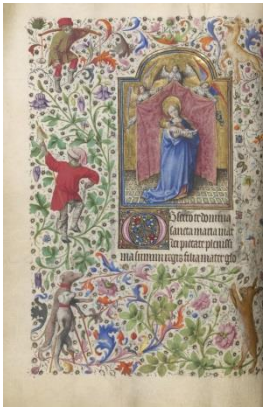 Obsecro te domina
sancta maria mater
dei pietate plenissi
ma summi regis filia mater glo